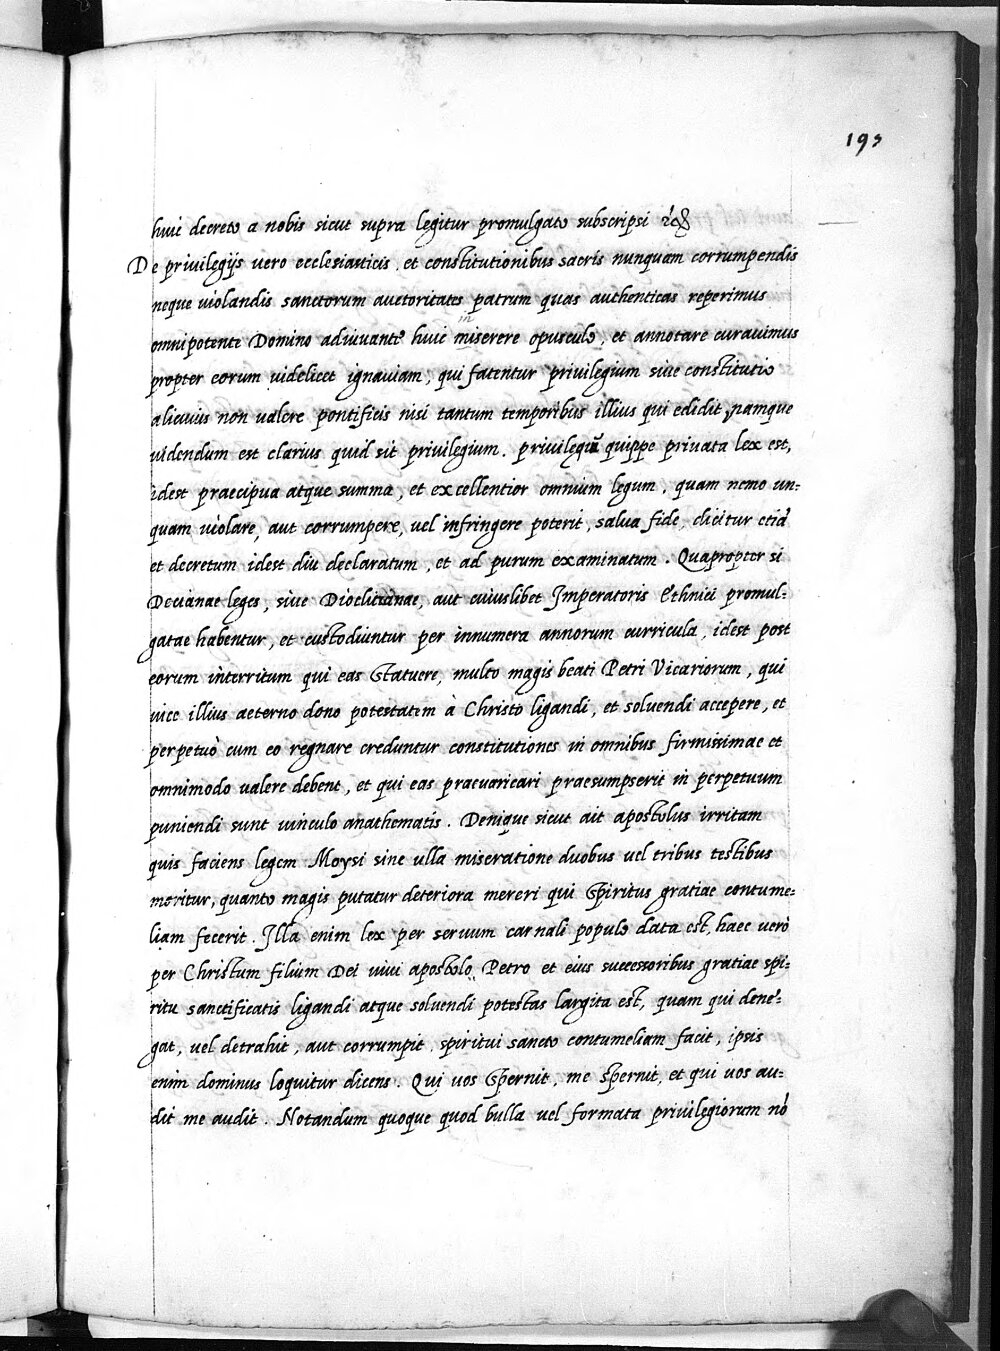 193
huic decreto a nobis sicut supra legitur promulgato subscripsi
De privilegijs vero ecclesiasticis, et constitutionibus sacris nunquam corrumpendis
neque violandis sanctorum auctoritates patrum quas authenticas reperimus
in
omnipotente Domino adiuvante huic miserere opusculo, et annotare curavimus
propter eorum videlicet ignaviam, qui fatentur privilegium sive constitutio
alicuius non valere pontificis nisi tantum temporibus illius qui edidit, namque
videndum est clarius quid sit privilegium. privilegiū quippe privata lex est,
idest praecipua atque summa, et excellentior omnium legum, quam nemo un=
quam violare, aut corrumpere, vel infringere poterit, salva fide, dicitur etiā
et decretum idest diu declaratum, et ad purum examinatum. Quapropter si
Decianae leges, sive Dioclitianae, aut cuiuslibet Imperatoris Ethnici promul=
gatae habentur, et custodiuntur per innumera annorum curricula, idest post
eorum interritum qui eas Statuere, multo magis beati Petri Vicariorum, qui
vice illius aeterno dono potestatem à Christo ligandi, et solvendi accepere, et
perpetuò cum eo regnare creduntur constitutiones in omnibus firmissimae et
omnimodo valere debent, et qui eas praevaricari praesumpserit in perpetuum
puniendi sunt vinculo anathematis. Denique sicut ait apostolus irritam
quis faciens legem Moysi sine ulla miseratione duobus vel tribus testibus
moritur, quanto magis putatur deteriora mereri qui Spiritus gratiae contume=
liam fecerit. Illa enim lex per servum carnali populo data est, haec verò
per Christum filium Dei vivi apostolo Petro et eius successoribus gratiae spi=
ritu sanctificatis ligandi atque solvendi potestas largita est, quam qui dene=
gat, vel detrahit, aut corrumpit, spiritui sancto contumeliam facit, ipsis
enim dominus loquitur dicens. Qui vos Spernit, me spernit, et qui vos au=
dit me audit. Notandum quoque quod bulla vel formata privilegiorum nō